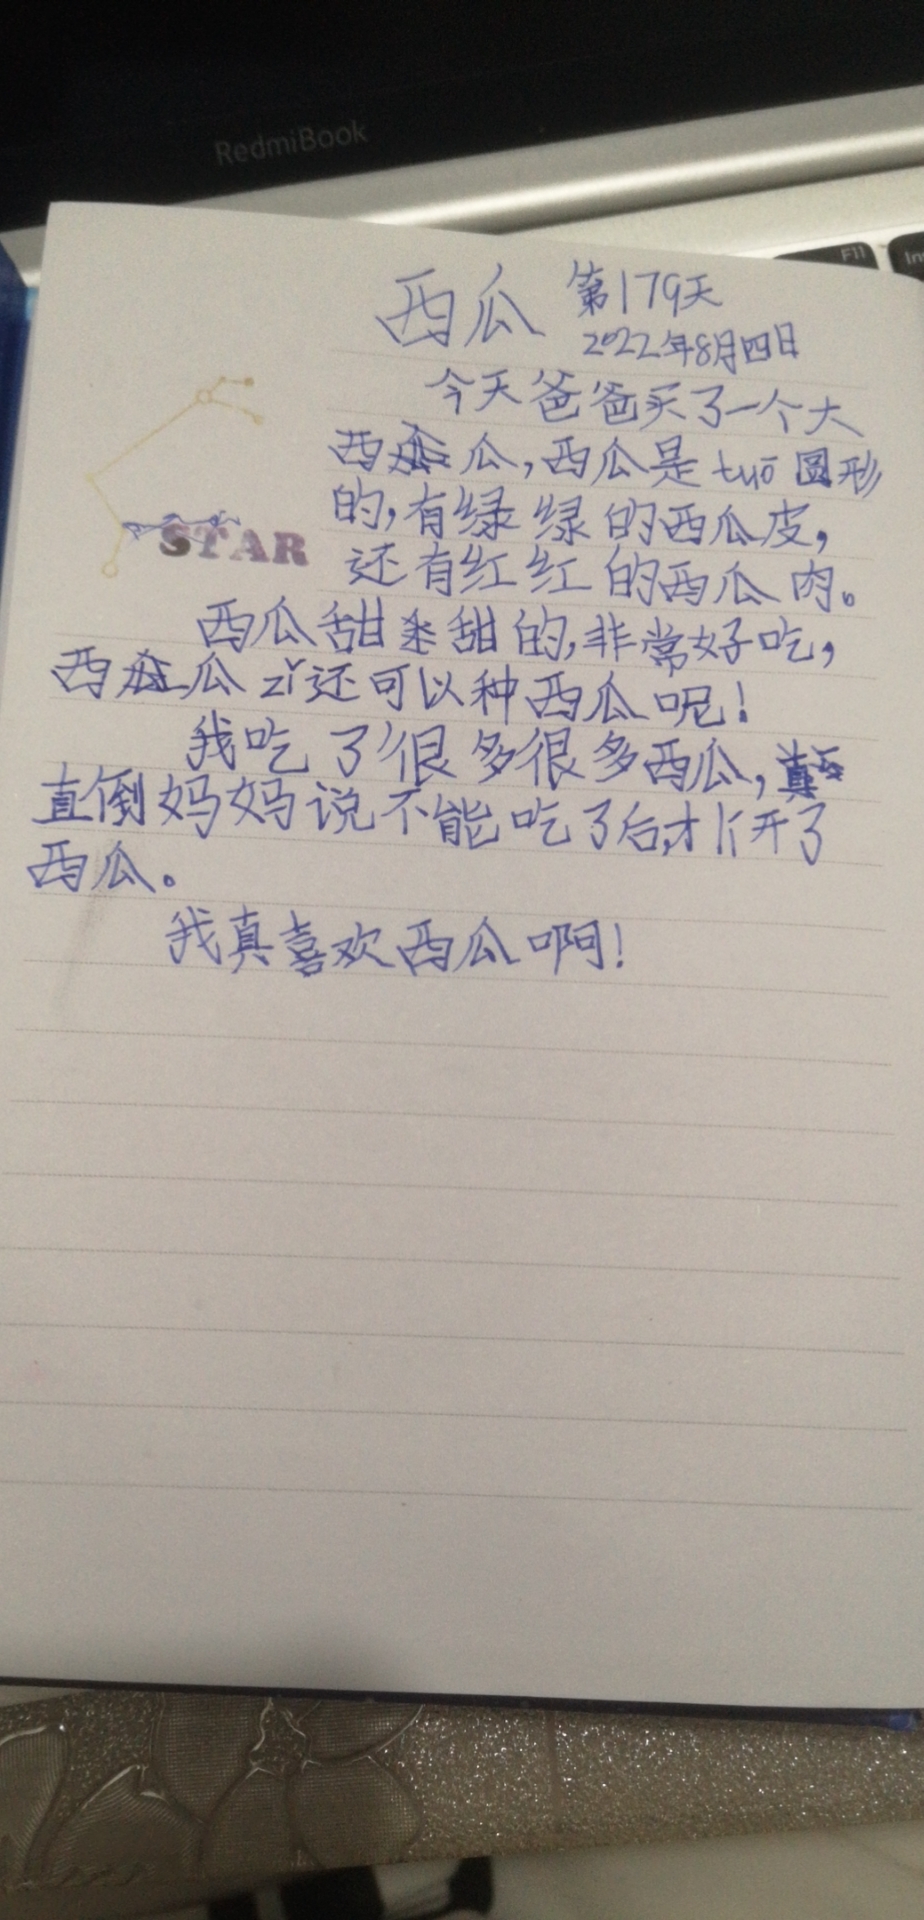 RedmiBook
F11
In
西瓜 第179天
2022年8月四日
今天爸爸买了一个大
西瓜,西瓜是tuǒ圆形
的,有绿绿的西瓜皮,
STAR
还有红红的西瓜肉。
西瓜甜甜的,非常好吃,
西瓜zǐ还可以种西瓜呢!
我吃了很多很多西瓜,
直倒妈妈说不能吃了后,才lí开了
西瓜。
我真喜欢西瓜啊!